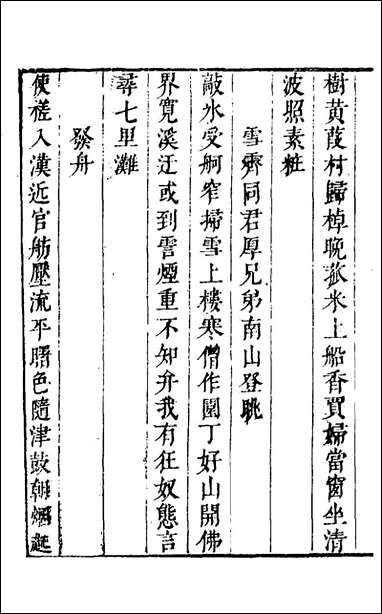 樹黃葭村歸棹晚菰米上船香賈婦當窗坐清
波照素粧
雪霽同君厚兄弟南山登眺
敲氷受舸窄掃雪上樓寒僧作園丁好山開佛
界寬溪迂或到霅煙重不知弁我有狂奴態言
尋七里灘
發舟
使槎入漢近官舫壓流平曙色隨津鼓朝煙起